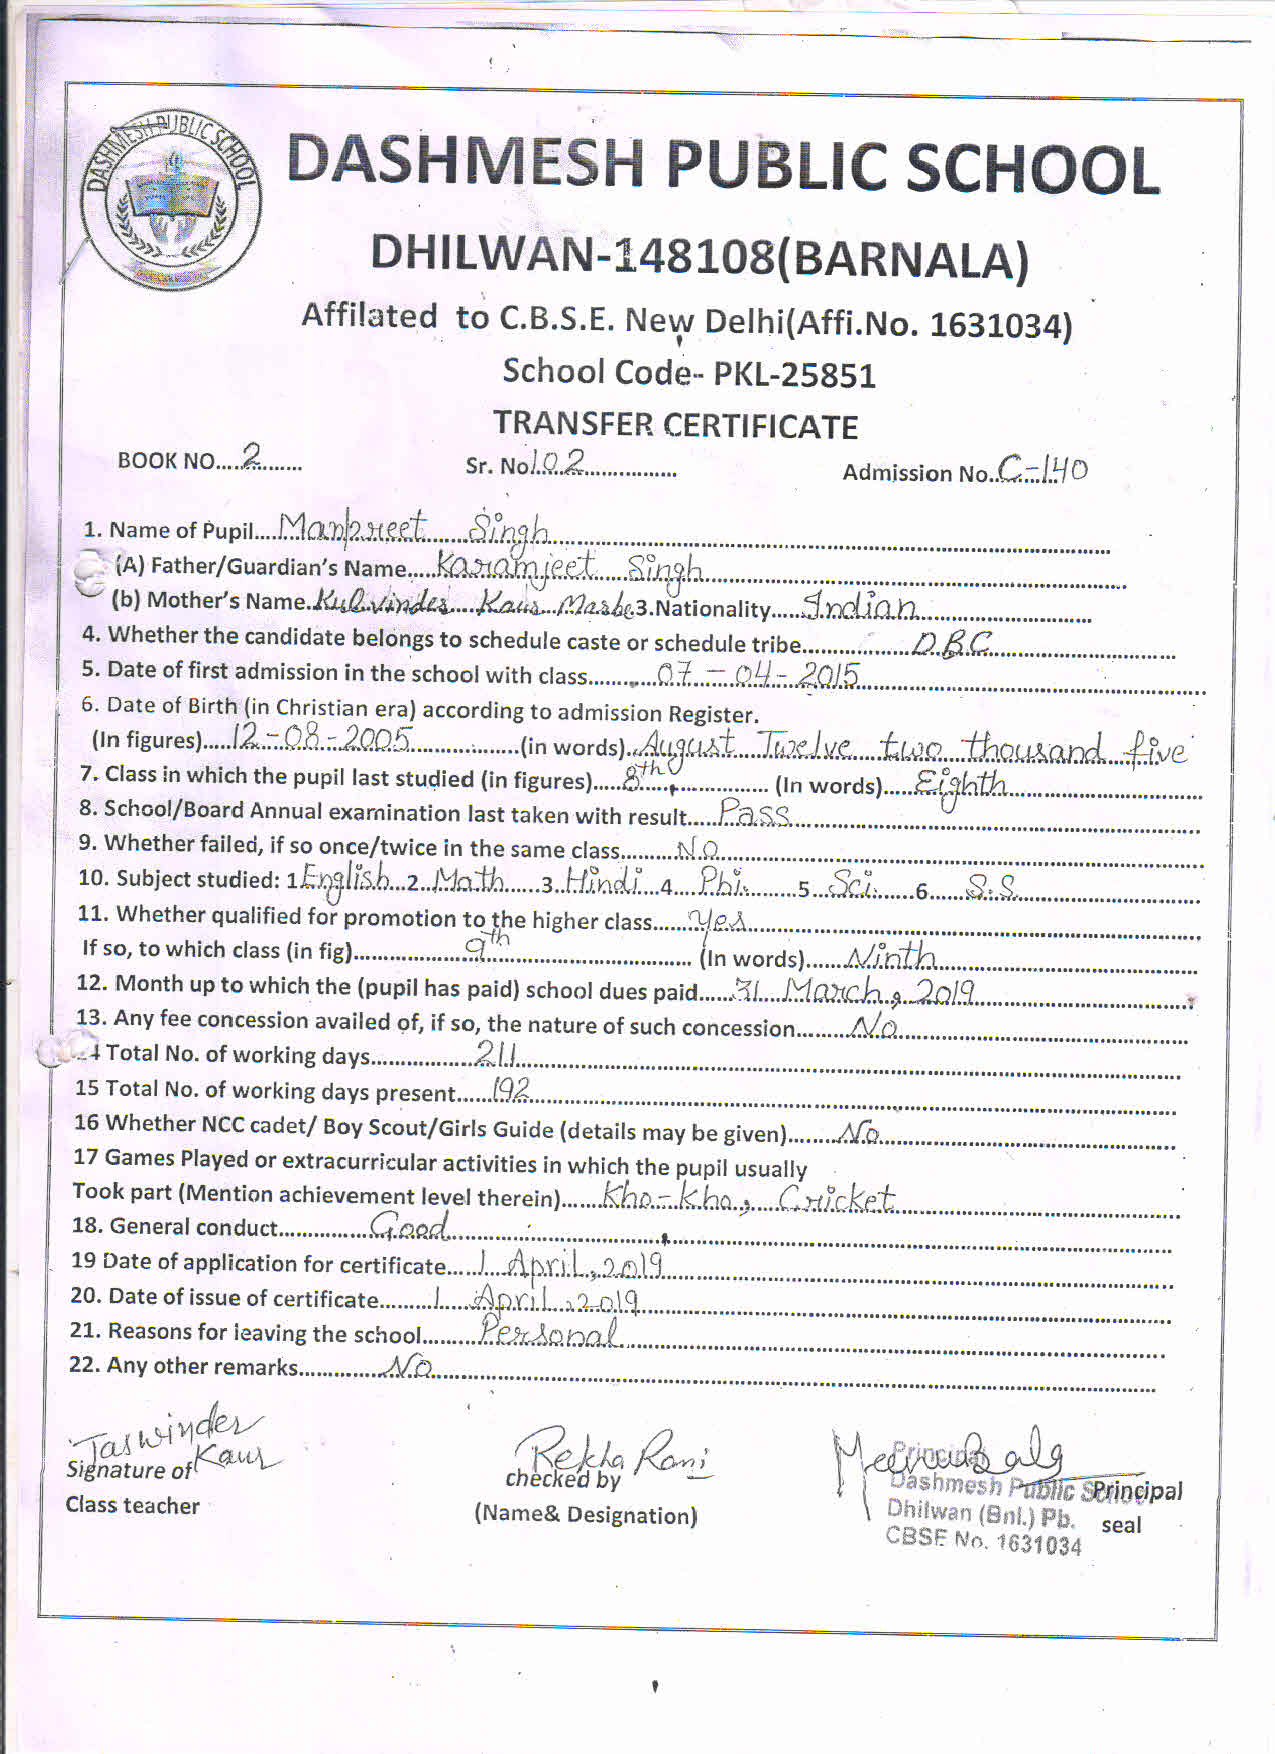 DASHMESH PUBLIC SCHOOL
DASHMESH PUBLIC SCHOOL
DHILWAN-148108(BARNALA)
Affilated to C.B.S.E. New Delhi(Affi.No. 1631034)
School Code- PKL-25851
TRANSFER CERTIFICATE
BOOK NO.....2........ Sr. No.102................ Admission No..C-140
1. Name of Pupil....Manpreet Singh
(A) Father/Guardian's Name.....Karamjeet Singh
(b) Mother's Name.Kulvinder Kaur 3.Nationality.....Indian
4. Whether the candidate belongs to schedule caste or schedule tribe..........OBC
5. Date of first admission in the school with class..........07-04-2015
6. Date of Birth (in Christian era) according to admission Register.
(In figures).....12-08-2005..................(in words)..August Twelve two thousand five
7. Class in which the pupil last studied (in figures).....8th.................. (In words).....Eighth
8. School/Board Annual examination last taken with result.....Pass
9. Whether failed, if so once/twice in the same class.........No
10. Subject studied: 1English...2..Math.....3..Hindi...4....Pbi.......5...Sci.......6......S.S.
11. Whether qualified for promotion to the higher class......Yes
If so, to which class (in fig)...................9th.................................. (In words)......Ninth
12. Month up to which the (pupil has paid) school dues paid......31 March, 2019
13. Any fee concession availed of, if so, the nature of such concession.........No
4 Total No. of working days.................211
15 Total No. of working days present......192
16 Whether NCC cadet/ Boy Scout/Girls Guide (details may be given)........No
17 Games Played or extracurricular activities in which the pupil usually
Took part (Mention achievement level therein).......Kho-Kho, Cricket
18. General conduct...............Good
19 Date of application for certificate.....1 April, 2019
20. Date of issue of certificate.........1 April, 2019
21. Reasons for leaving the school.........Personal
22. Any other remarks..............No
Jaswinder Kaur Rekha Rani
Signature of checked by Principal
Class teacher (Name& Designation) seal
Principal
Dashmesh Public School
Dhilwan (Bnl.) Pb.
CBSE No. 1631034